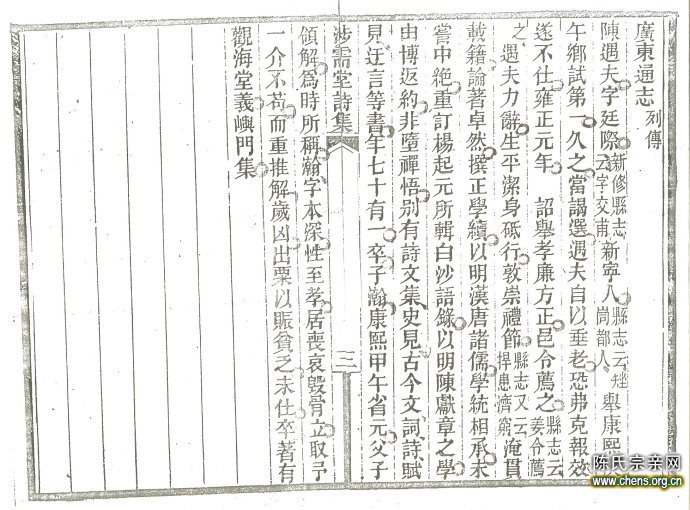 廣東通志 列傳
陳遇夫字廷際 新修縣志云字交甫 新寧人 縣志云矬岡都人 舉康熙
午鄉試第一久之當謁選遇夫自以垂老恐弗克報效
遂不仕雍正元年 詔舉孝廉方正邑令薦之 縣志云姜令薦
之 遇夫力辭生平潔身砥行敦崇禮節 縣志又云捍患濟窮 淹貫
載籍論著卓然撰正學續以明漢唐諸儒學統相承未
嘗中絶重訂楊起元所輯白沙語錄以明陳獻章之學
由博返約非墮禪悟别有詩文集史見古今文詞詩賦
見迂言等書年七十有一卒子瀚康熙甲午省元父子
涉需堂詩集 三
領解爲時所稱瀚字本深性至孝居喪哀毀骨立取予
一介不苟而重推解歲凶出粟以賑貧乏未仕卒著有
觀海堂義嶼門集
陈氏宗亲网
www.chens.org.cn